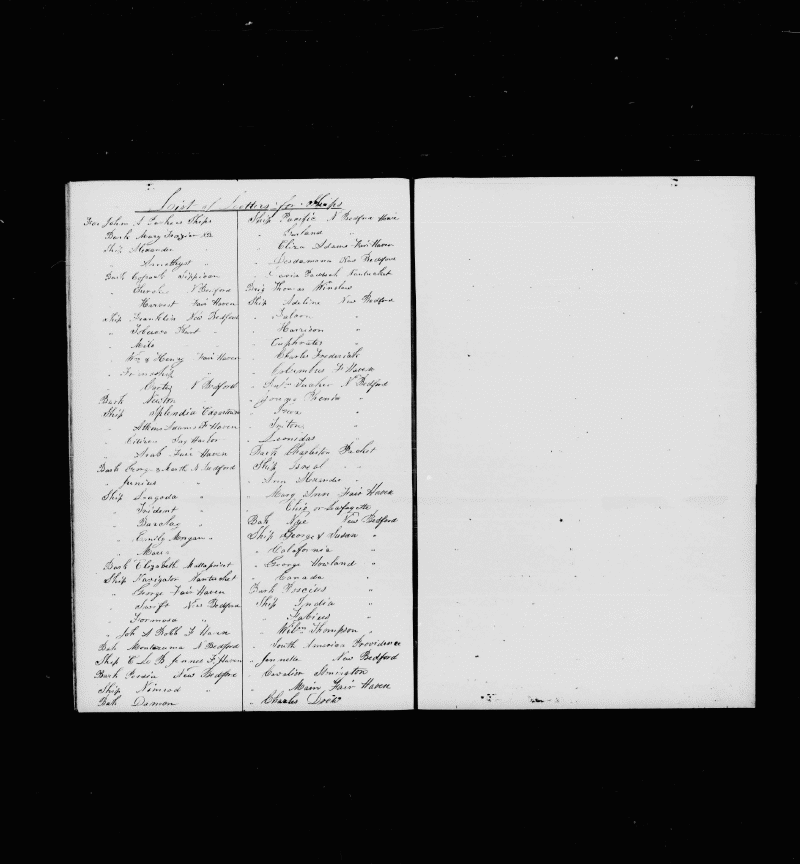 List of Letters for Ships
John A Parkers Ships
Bark Mary Frazier NB
Ship Alexander
" Amethyst "
Bark Copack Sippican
" Cherokee N Bedford
" Harvest Fair Haven
Ship Franklin New Bedford
" Tobacco Plant "
" Milo "
" Wm & Henry Fair Haven
" Friendship "
" Cortes N Bedford
Bark Newton "
Ship Splendid Edgartown
" Atkins Adams F. Haven
" Citizen Sag Harbor
" Arab Fair Haven
Bark Geory & Marth N Bedford
" Junius "
Ship Dragoda "
" Trident "
" Barclay "
" Emily Morgan "
" Maria
Bark Elizabeth Mattapoisett
Ship Navigator Nantucket
" George Fair Haven
" Swift New Bedford
" Formosa "
" Job A Robb F Haven
Bak Montezuma N Bedford
Ship E Le B Jennes F. Haven
Bark Persia New Bedford
Ship Nimrod "
Bak Damon
Ship Pacific N Bedford
" Garland "
" Eliza Adams Fair Haven
" Desdamona New Bedford
" Paddack Nantucket
Brig Thomas Winslow
Ship Adeline New Bedford
" Saloon "
" Harrison "
" Euphrates "
" Charles Frederick
" Columbus F Haven
" Tucher N Bedford
" Young Phenix "
" Iowa "
" Triton "
" Leonidas "
Bark Charleston Packet
Ship
" Ann Alexander "
" Mary Ann Fair Haven
" Ohio or Lafayette
Bak Nye New Bedford
Ship George & Susan "
" California "
" George Howland "
" Canada "
Bark Roscius "
Ship India "
" Fabius "
" Wilm Thompson "
" South America Providence
" Jannette New Bedford
" Cavalier Stonington
" Main Fair Haven
" Charles Drew